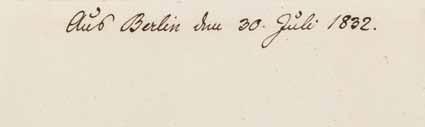 Aus Berlin den 30. Juli 1832.